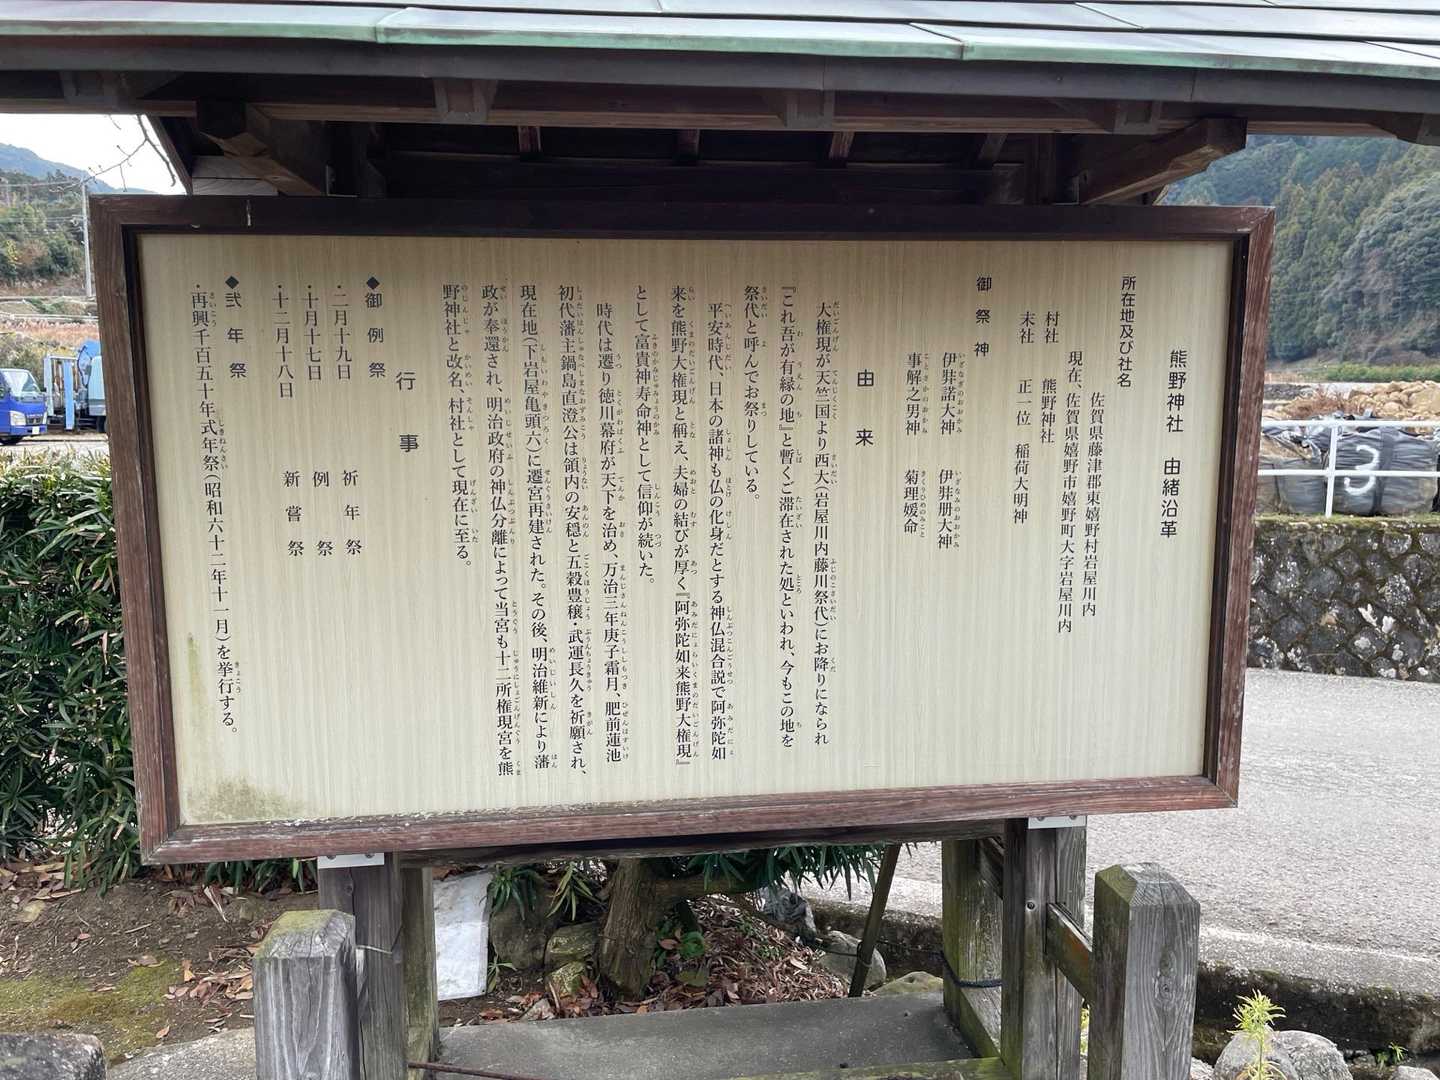 熊野神社 由緒沿革
所在地及び社名
佐賀県藤津郡東嬉野村岩屋川内
現在、佐賀県嬉野市嬉野町大字岩屋川内
村社 熊野神社
末社 正一位 稲荷大明神
御祭神
伊弉諾大神 伊弉册大神
事解之男神 菊理媛命
由来
大権現が天竺国より西大(岩屋川内藤川祭代)にお降りになられ
『これ吾が有縁の地』と暫くご滞在された処といわれ、今もこの地を
祭代と呼んでお祭りしている。
平安時代、日本の諸神も仏の化身だとする神仏混合説で阿弥陀如
来を熊野大権現と称え、夫婦の結びが厚く『阿弥陀如来熊野大権現』
として富貴神寿命神として信仰が続いた。
時代は遷り徳川幕府が天下を治め、万治三年庚子霜月、肥前蓮池
初代藩主鍋島直澄公は領内の安穏と五穀豊穣・武運長久を祈願され、
現在地(下岩屋亀頭六)に遷宮再建された。その後、明治維新により藩
政が奉還され、明治政府の神仏分離によって当宮も十二所権現宮を熊
野神社と改名、村社として現在に至る。
行事
◆御例祭
・二月十九日 祈年祭
・十月十七日 例祭
・十二月十八日 新嘗祭
◆弐年祭
・再興千百五十年式年祭(昭和六十二年十一月)を挙行する。
3